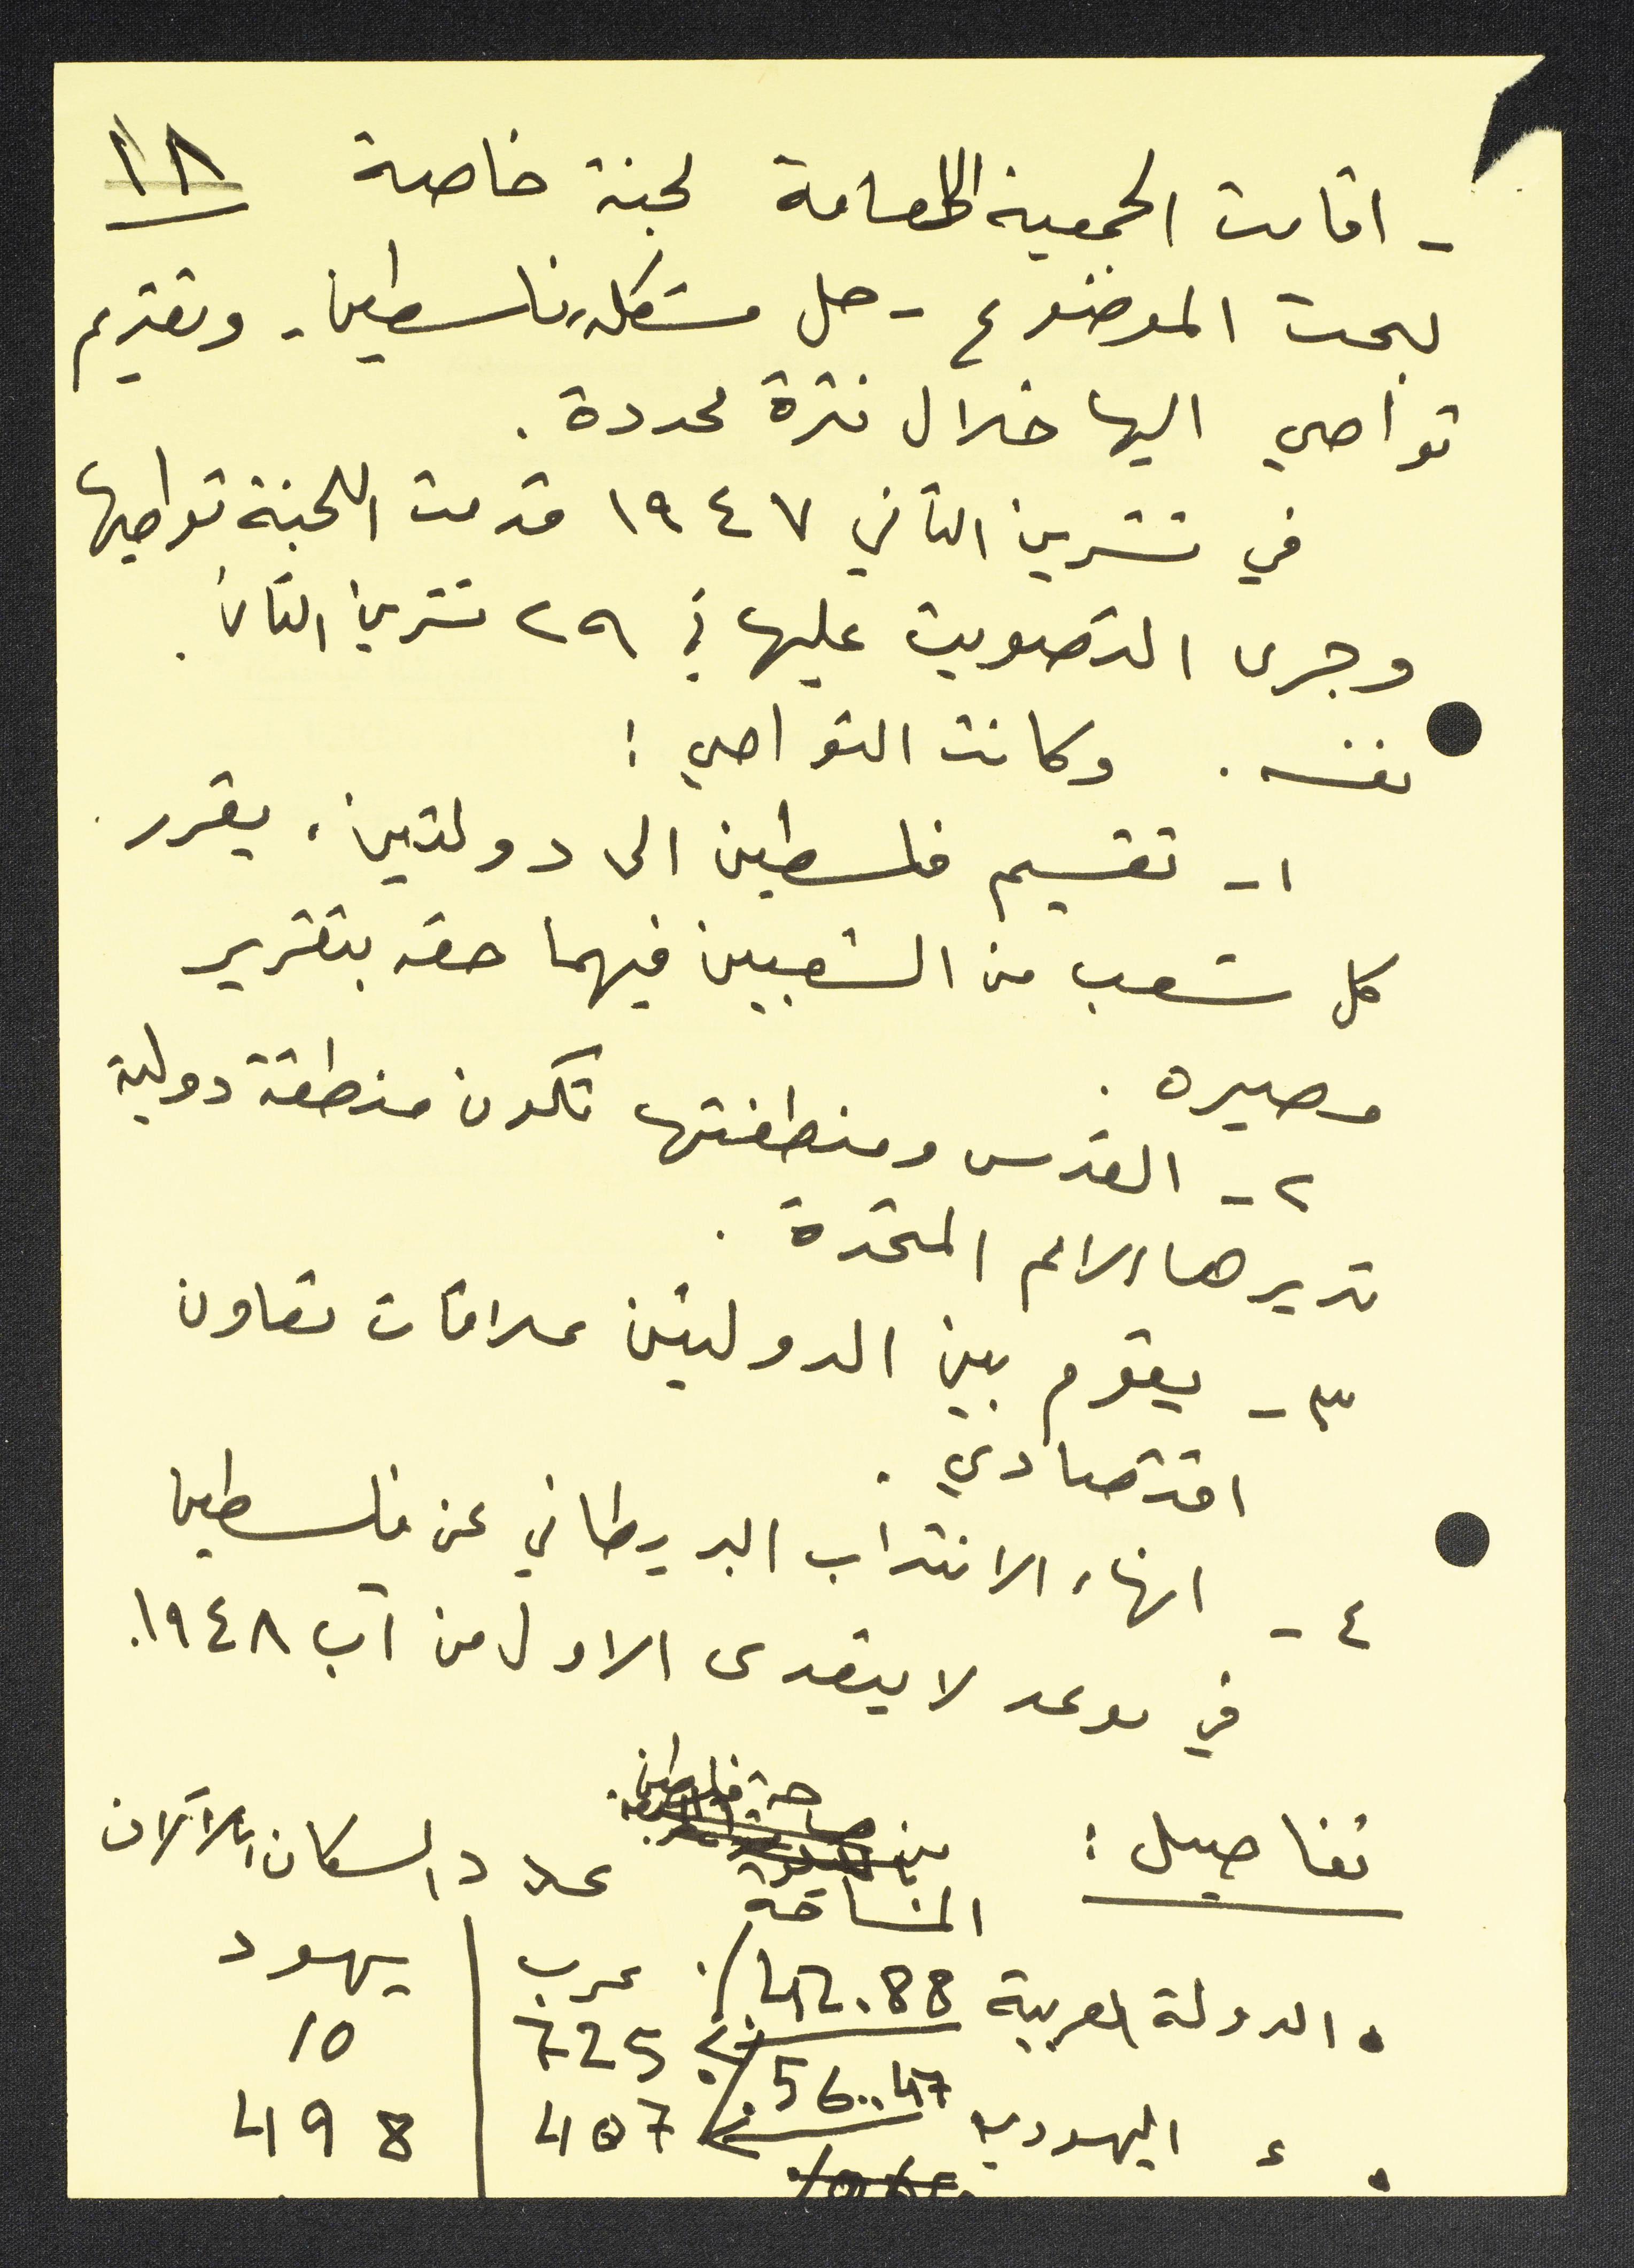 ١٨
- اقامت الجمعية العامة لجنة خاصة
لبحث الموضوع - حل مشكلة فلسطين - وتقديم
تواصي اليها خلال فترة محددة .
في تشرين الثاني ١٩٤٧ قدمت اللجنة تواصيها
وجرى التصويت عليها في ٢٩ تشرين الثاني .
نفسه . وكانت التواصي :
١- تقسيم فلسطين الى دولتين ، يقرر
كل شعب من الشعبين فيهما حقه بتقرير
مصيره .
٢- القدس ومنطقتها تكون منطقة دولية
تديرها الامم المتحدة .
٣- يقوم بين الدولتين علاقات تعاون
اقتصادي .
٤- انهاء الانتداب البريطاني عن فلسطين
في موعد لا يتعدى الاول من آب ١٩٤٨.
تفاصيل : مساحة فلسطين
المساحة عدد السكان بالآلاف
عرب | يهود
• الدولة العربية 42.88٪ 725 | 10
• ء اليهودية 56.47٪ 407 | 498